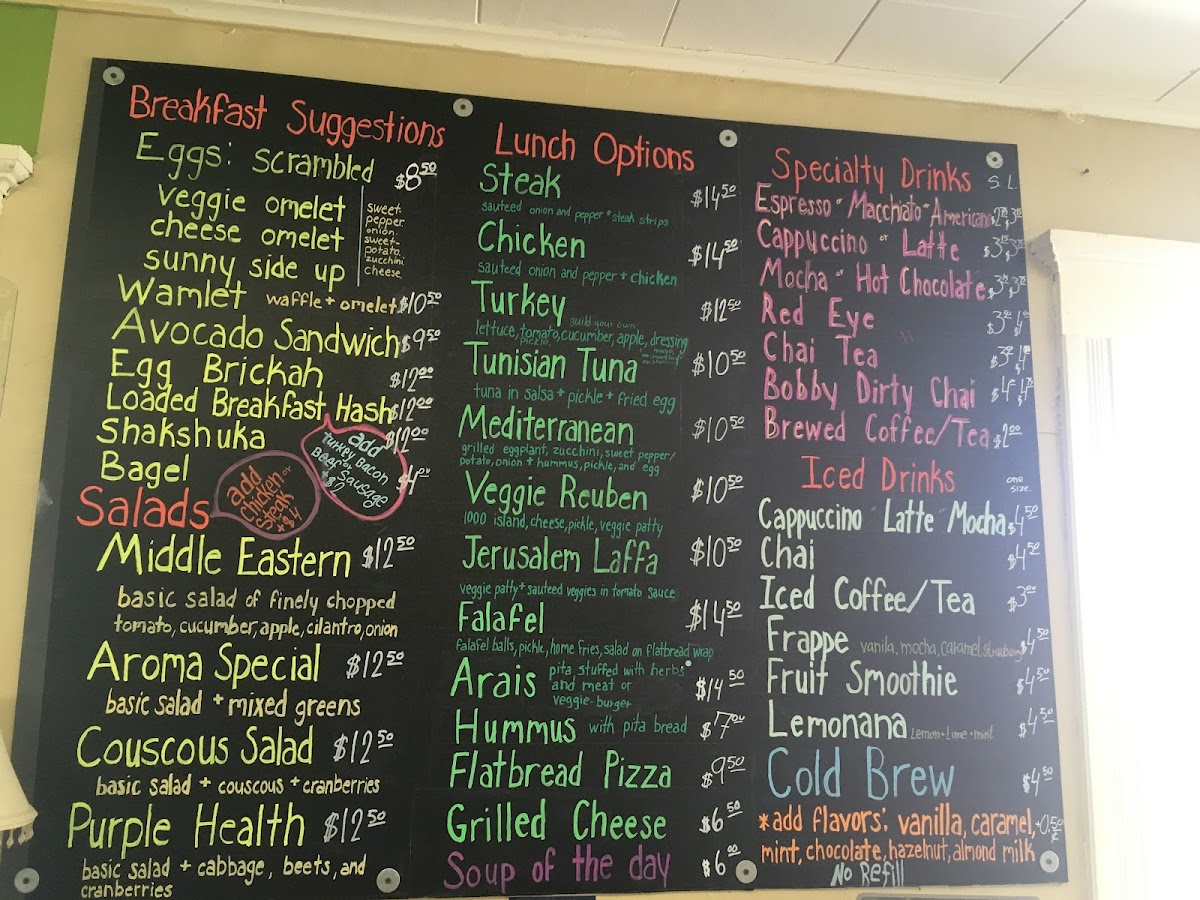 Breakfast Suggestions
Eggs: scrambled $8.50
veggie omelet
cheese omelet
sunny side up
sweet-
pepper
onion
sweet-
potato
zucchini
cheese
Wamlet waffle + omelet $10.50
Avocado Sandwich $9.50
Egg Brickah $12.00
Loaded Breakfast Hash $12.00
Shakshuka $12.00
Bagel $4.00
add
Turkey Bacon
or
Beef Sausage
add
chicken or
steak
$4
Salads
Middle Eastern $12.50
basic salad of finely chopped
tomato, cucumber, apple, cilantro, onion
Aroma Special $12.50
basic salad + mixed greens
Couscous Salad $12.50
basic salad + couscous + cranberries
Purple Health $12.50
basic salad + cabbage, beets, and
cranberries
Lunch Options
Steak $14.50
sauteed onion and pepper + steak strips
Chicken $14.50
sauteed onion and pepper + chicken
Turkey build your own: $12.50
lettuce, tomato, cucumber, apple, dressing
pickle
Tunisian Tuna $10.50
tuna in salsa + pickle + fried egg
Mediterranean $10.50
grilled eggplant, zucchini, sweet pepper/
potato, onion + hummus, pickle, and egg
Veggie Reuben $10.50
1000 island, cheese, pickle, veggie patty
Jerusalem Laffa $10.50
veggie patty + sauteed veggies in tomato sauce
Falafel $14.50
falafel balls, pickle, home fries, salad on flatbread wrap
Arais pita stuffed with herbs $14.50
and meat or
veggie-burger
Hummus with pita bread $7.00
Flatbread Pizza $9.50
Grilled Cheese $6.50
Soup of the day $6.00
Specialty Drinks S. L.
Espresso Macchiato Americano
Cappuccino or Latte
Mocha or Hot Chocolate
Red Eye
Chai Tea
Bobby Dirty Chai
Brewed Coffee/Tea $2.00
Iced Drinks one
size
Cappuccino Latte Mocha $4.50
Chai $4.50
Iced Coffee/Tea $3.00
Frappe vanila, mocha, caramel, strawberry $4.50
Fruit Smoothie $4.50
Lemonana Lemon + Lime + mint $4.50
Cold Brew $4.50
*add flavors: vanilla, caramel, +0.50
mint, chocolate, hazelnut, almond milk
No Refill